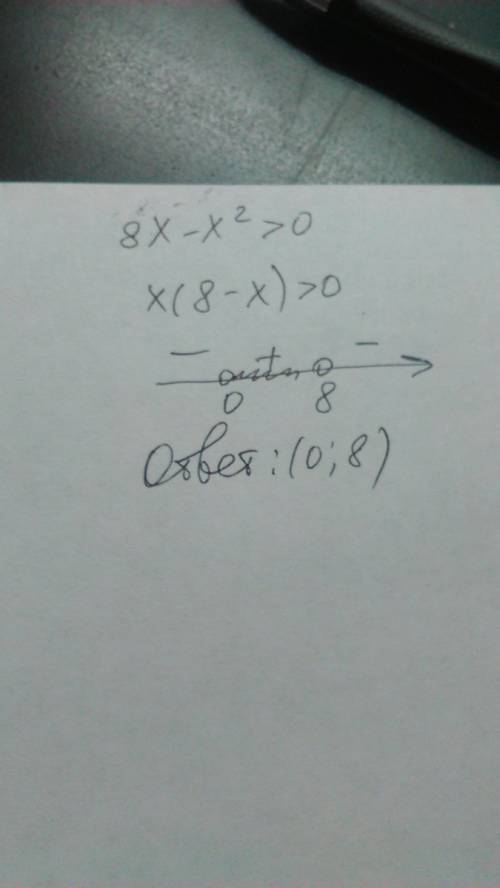 8x - x² > 0
x(8 - x) > 0
− + −
0 8
Ответ: (0; 8)